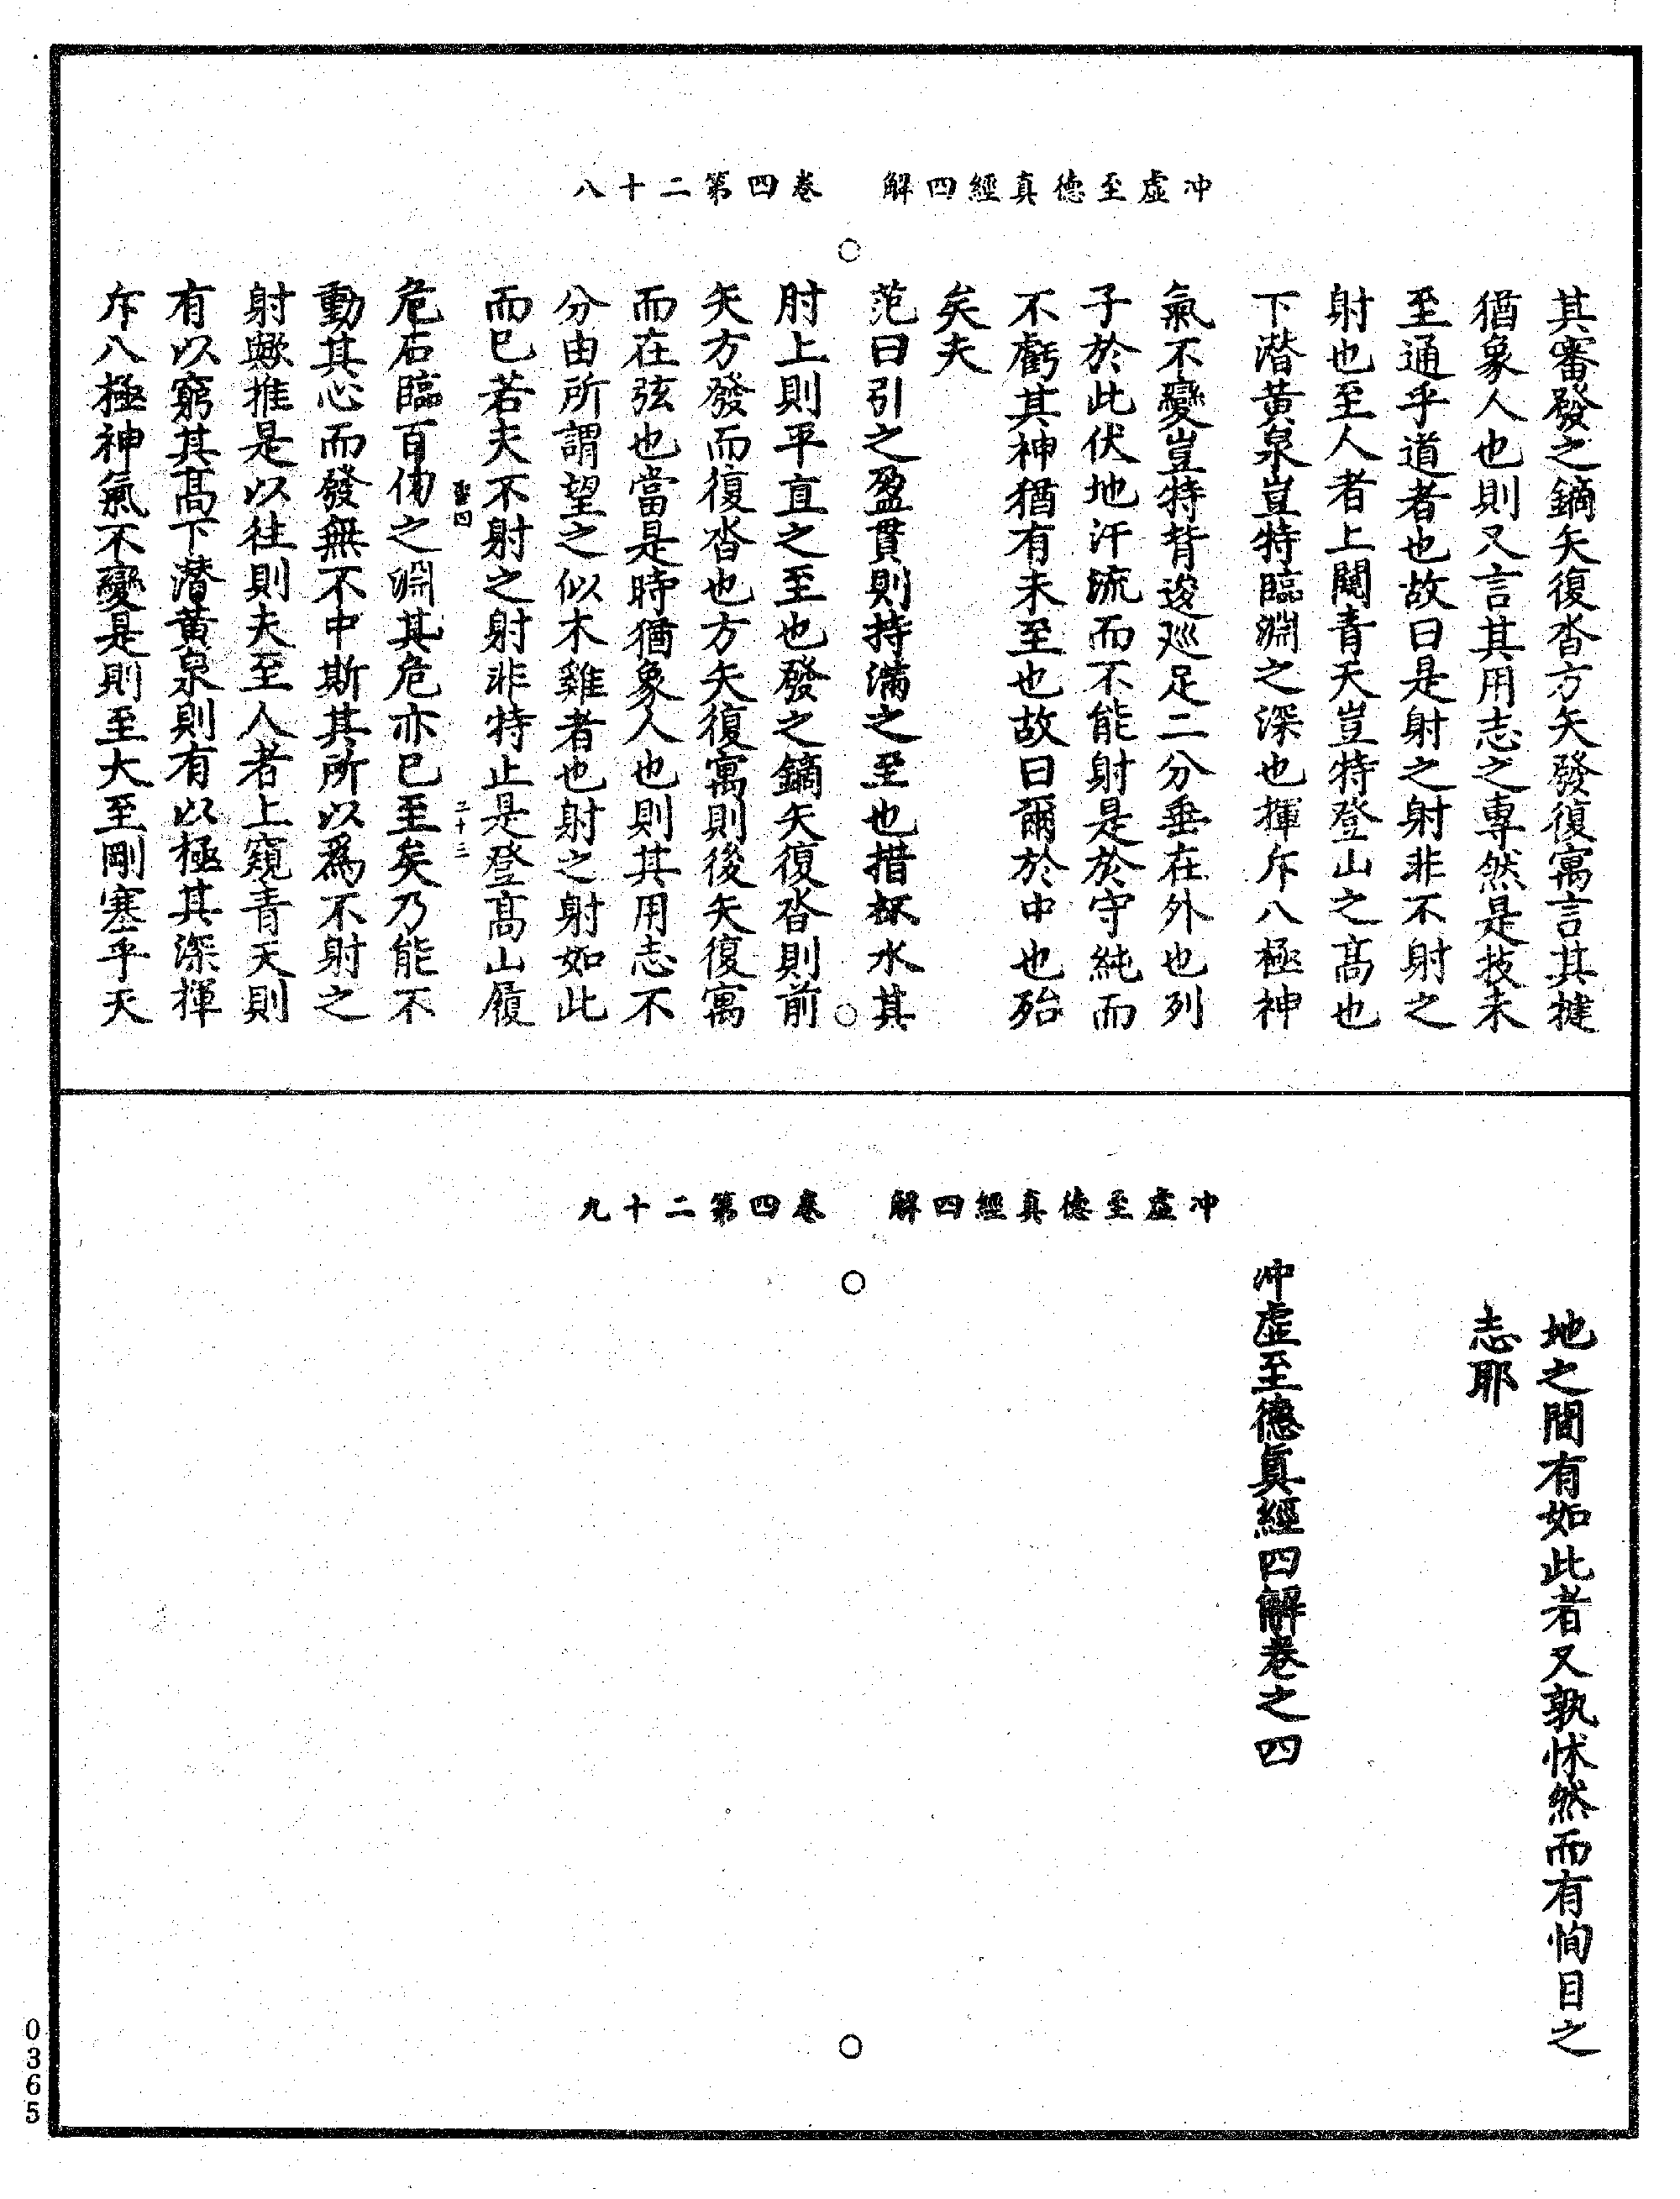 冲虛至德真經四解　卷四第二十八
其審發之鏑矢復沓方矢發復寓言其揵
猶象人也則又言其用志之專然是技未
至通乎道者也故曰是射之射非不射之
射也至人者上闚青天豈特登山之高也
下潛黃泉豈特臨淵之深也揮斥八極神
氣不變豈特背逡巡足二分垂在外也列
子於此伏地汗流而不能射是於守純而
不虧其神猶有未至也故曰爾於中也殆
矣夫
范曰引之盈貫則持滿之至也措杯水其
肘上則平直之至也發之鏑矢復沓則前
矢方發而復沓也方矢復寓則後矢復寓
而在弦也當是時猶象人也則其用志不
分由所謂望之似木雞者也射之射如此
而已若夫不射之射非特止是登高山履
聖四　二十三
危石臨百仞之淵其危亦已至矣乃能不
動其心而發無不中斯其所以爲不射之
射歟推是以往則夫至人者上窺青天則
有以窮其高下潛黃泉則有以極其深揮
斥八極神氣不變是則至大至剛塞乎天
冲虛至德真經四解　卷四第二十九
地之間有如此者又孰怵然而有恂目之
志耶
冲虛至德真經四解卷之四
0365